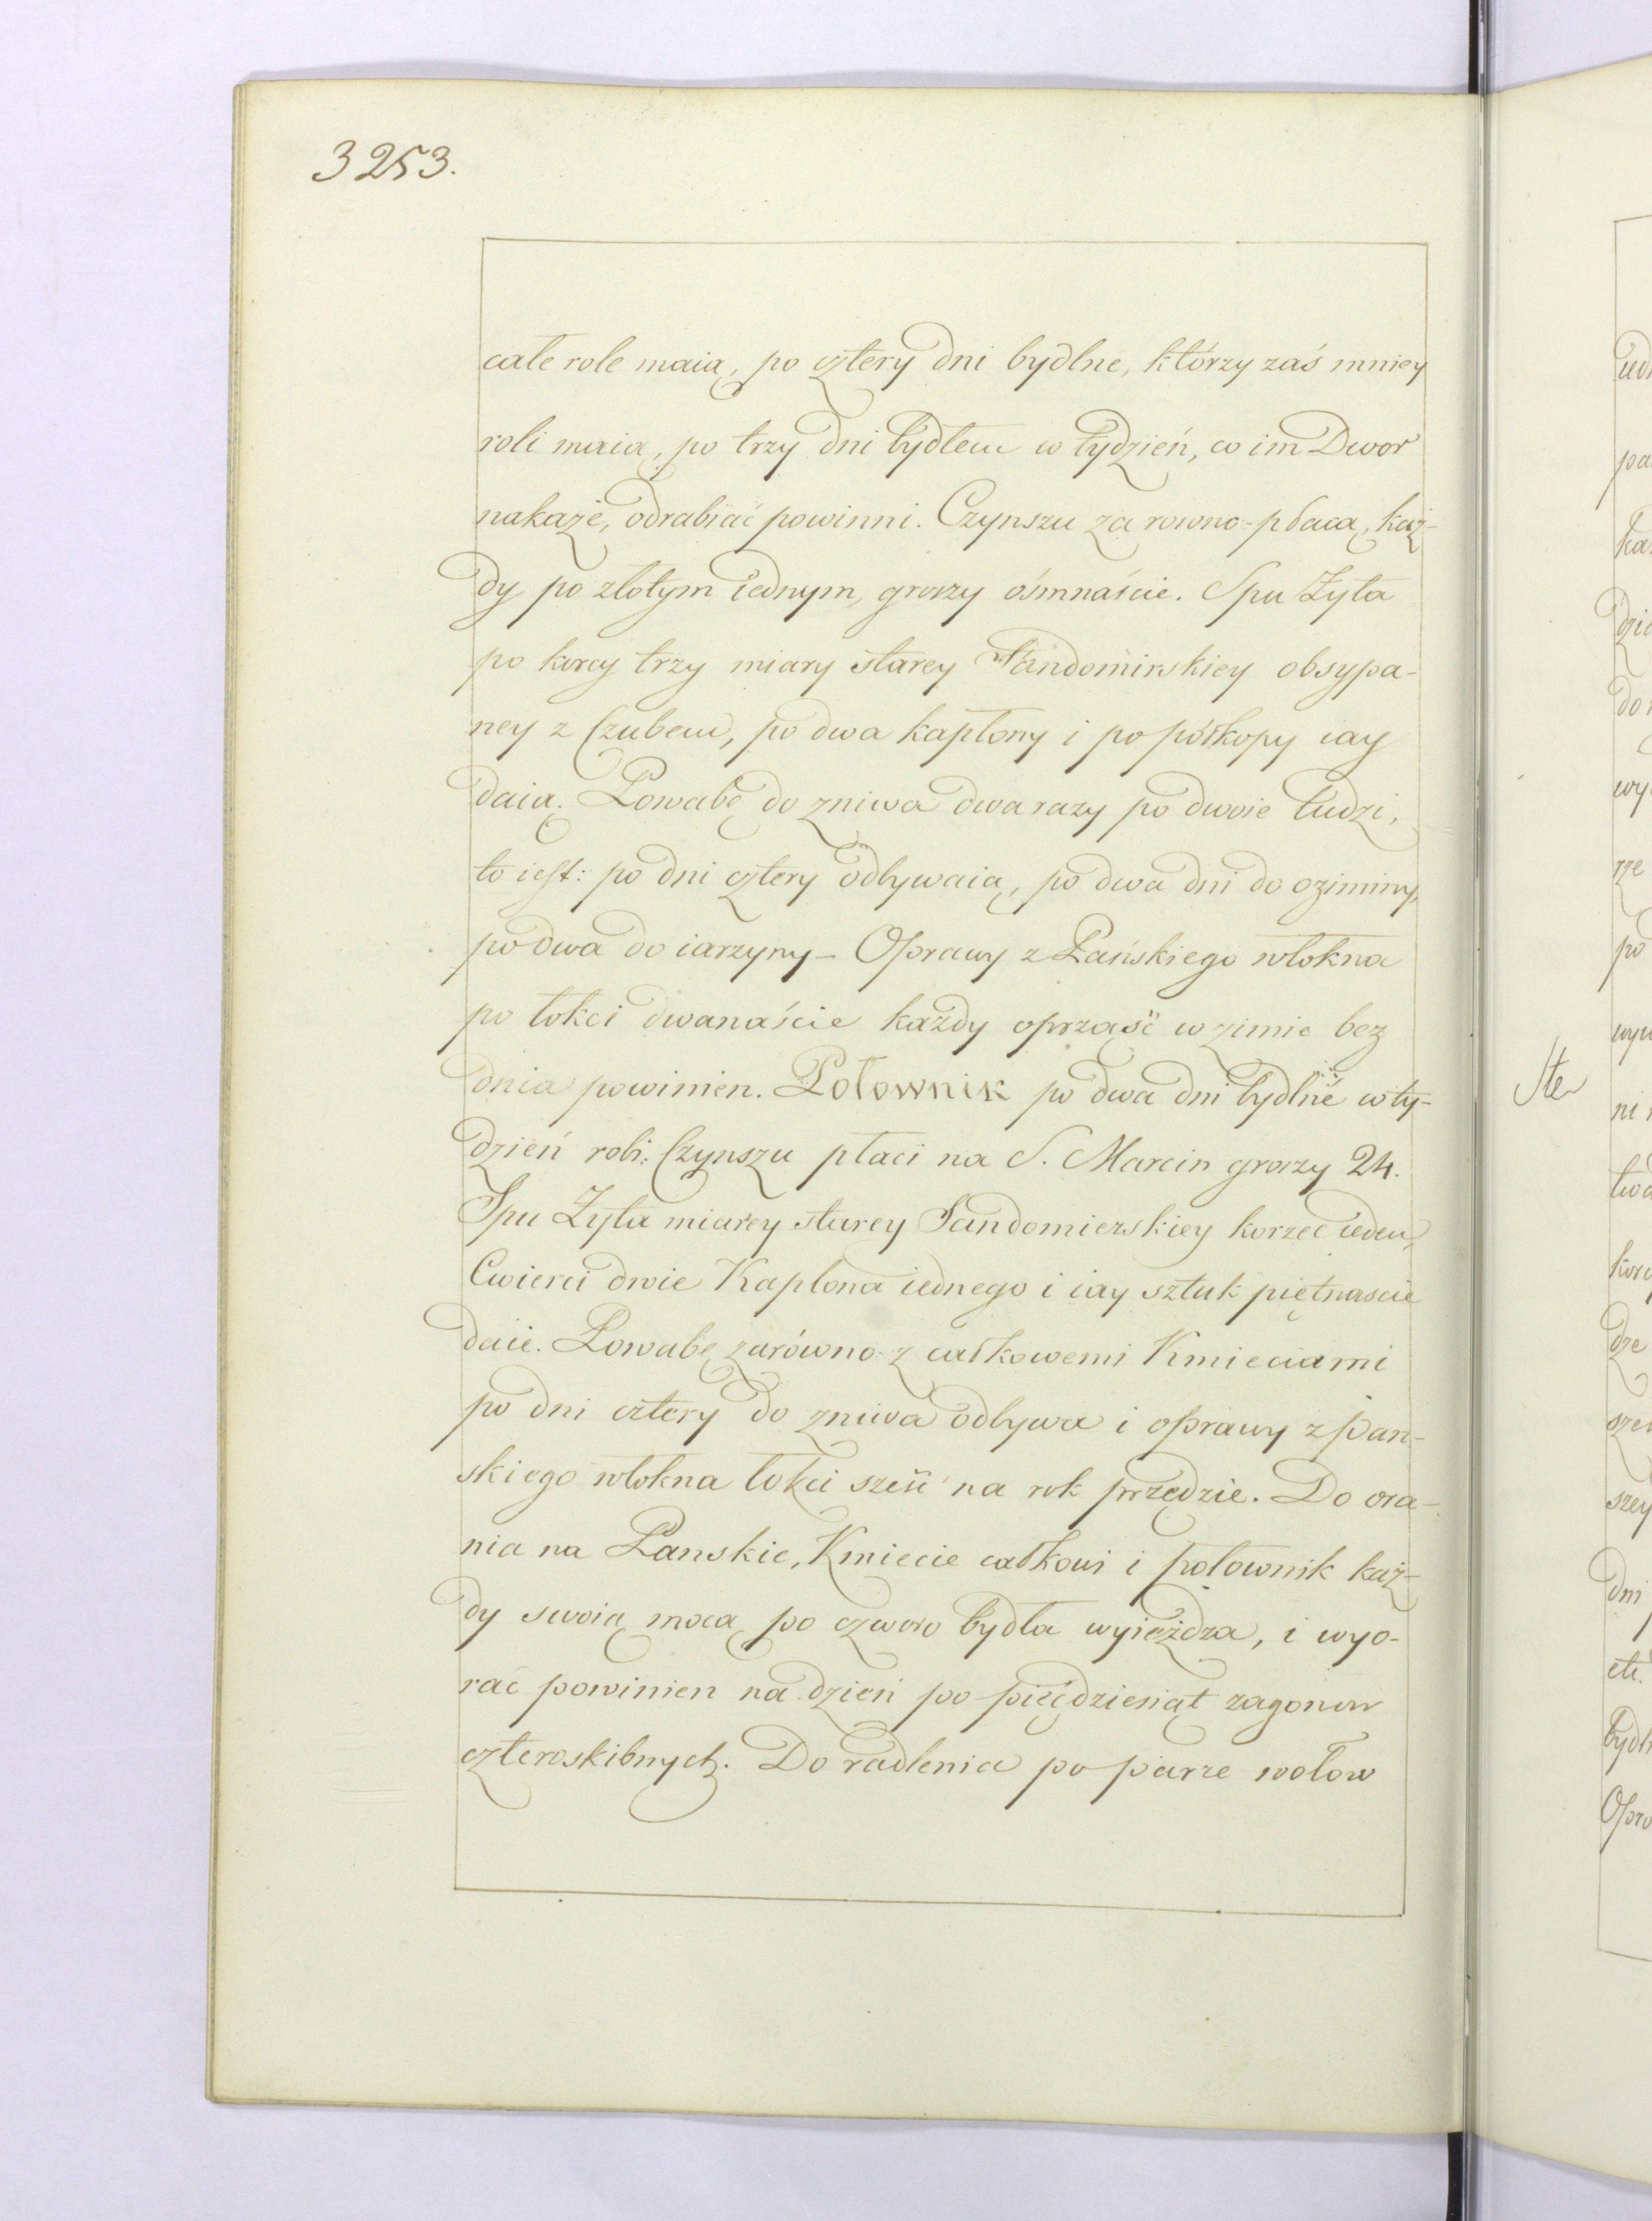 3253.
całe role maią, po cztery dni bydlne, którzy zaś mniey
roli maią, po trzy dni bydłem w tydzień, co im Dwor
nakaże, odrabiać powinni. Czynszu za rowno-płacą, kaz-
dy po złotym iednym, groszy ośmnaście. Spu Żyta
po korcy trzy miary starey Sandomirskiey obsypa-
ney z Czubem, po dwa kapłony i po półkopy iay
daią. Powabę do zniwa dwa razy po dwoie ludzi,
to iest: po dni cztery odbywaią, po dwa dni do oziminy,
po dwa do iarzyny- Oprawy z Pańskiego włokna
po łokci dwanaście każdy oprząść w zimie bez
dnia powinien. Połownik po dwa dni bydlne w ty-
dzień robi: Czynszu płaci na S. Marcin groszy 24.
Spu Zyta miarey starey Sandomierskiey korzec ieden,
Cwierci dwie Kapłona iednego i iay sztuk piętnascie
daie. Powabę zarówno z całkowemi Kmieciami
po dni cztery do zniwa odbywa i oprawy z Pan-
skiego włokna łokci sześć na rok przędzie. Do ora-
nia na Panskie, Kmiecie całkowi i połownik kaz-
dy swoią mocą po czworo bydła wyieżdza, i wyo-
rać powinien na dzień po pięćdziesiąt zagonow
czteroskibnych. Do radlenia po parze wołow